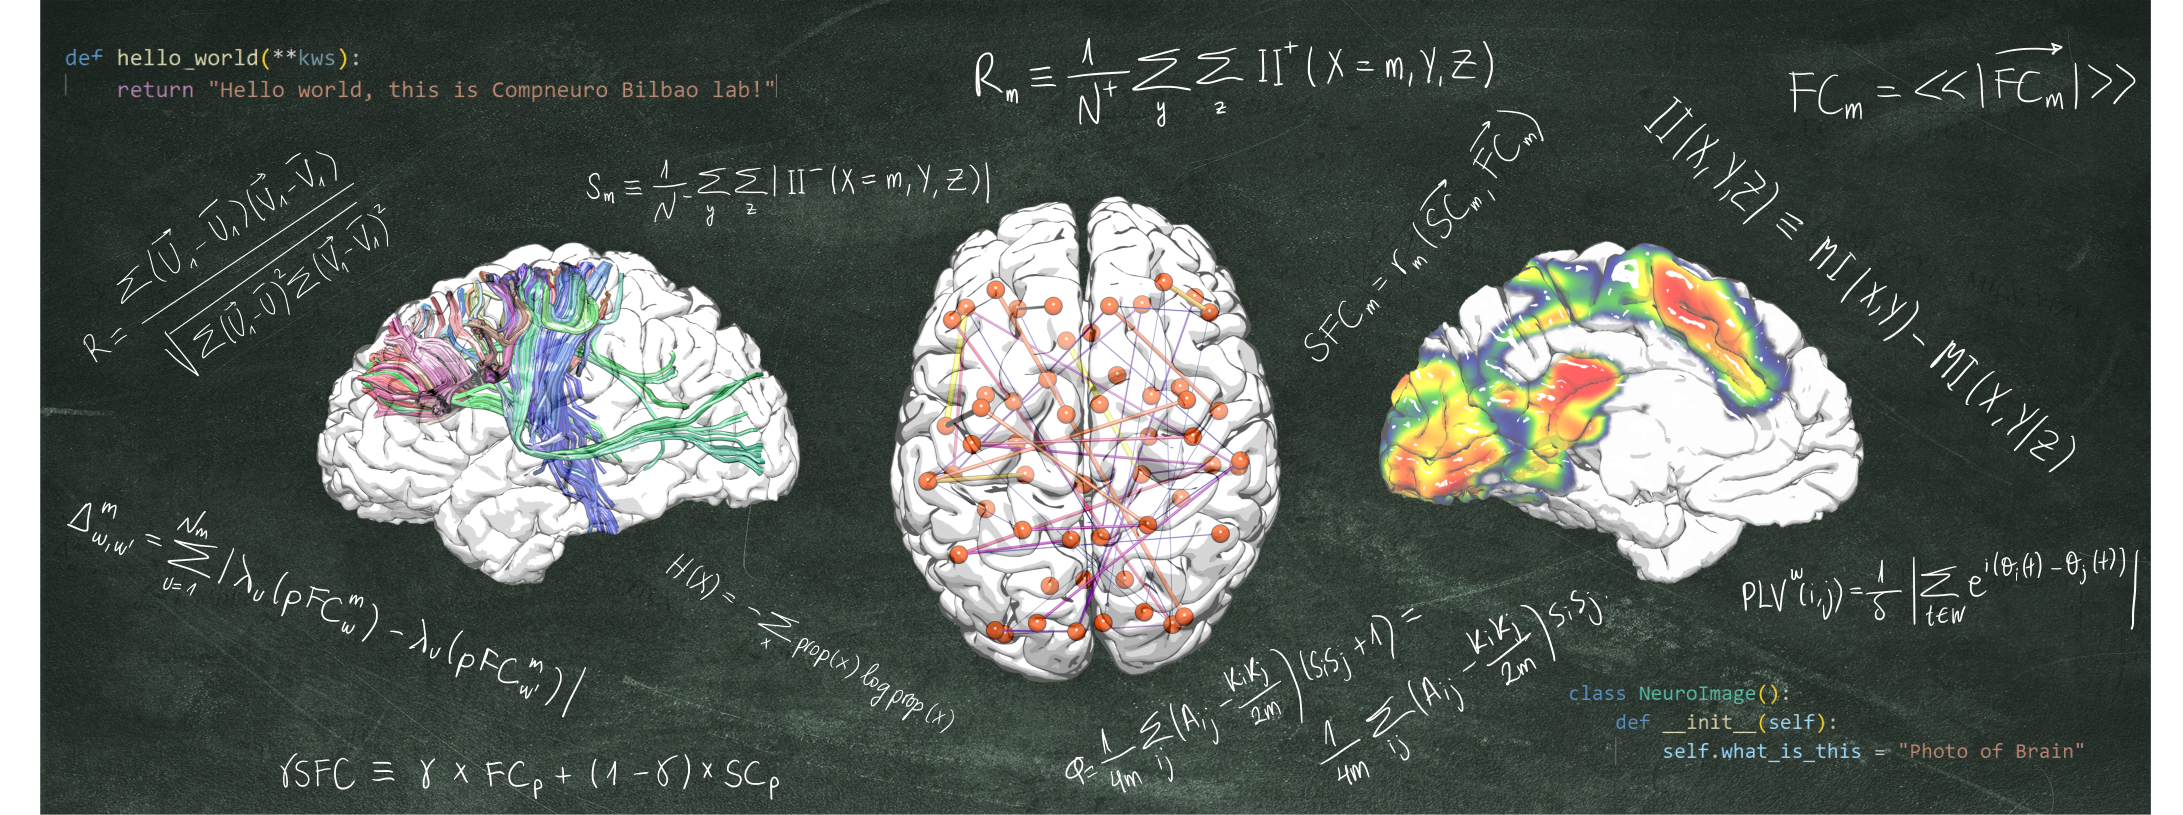 def hello_world(**kws):
return "Hello world, this is Compneuro Bilbao lab!"
R_m ≡ 1/N⁺ Σ_y Σ_z II⁺(X = m, Y, Z)
FC_m = <<|\vec{FC_m}|>>
S_m ≡ 1/N⁻ Σ_y Σ_z |II⁻(X = m, Y, Z)|
R = Σ(\vec{U}_1 - \bar{U}_1)(\vec{V}_1 - \bar{V}_1) / √(Σ(\vec{U}_1 - \bar{U})² Σ(\vec{V}_1 - \bar{V}_1)²)
SFC_m = r_m(\vec{SC}_m, \vec{FC}_m)
II(X,Y,Z) ≡ MI(X,Y) - MI(X,Y|Z)
Δ^m_{w,w'} = Σ_{υ=1}^{N_m} |λ_υ(pFC_w^m) - λ_υ(pFC_{w'}^m)|
H(X) = - Σ_x prop(x) log prop(x)
PLV^w(i,j) = 1/δ |Σ_{t∈W} e^{i(θ_i(t) - θ_j(t))}|
Q = 1/4m Σ_ij (A_ij - K_iK_j/2m)(S_iS_j + 1) =
1/4m Σ_ij (A_ij - K_iK_j/2m) S_iS_j.
γSFC ≡ γ × FC_p + (1 - γ) × SC_p
class NeuroImage():
def __init__(self):
self.what_is_this = "Photo of Brain"